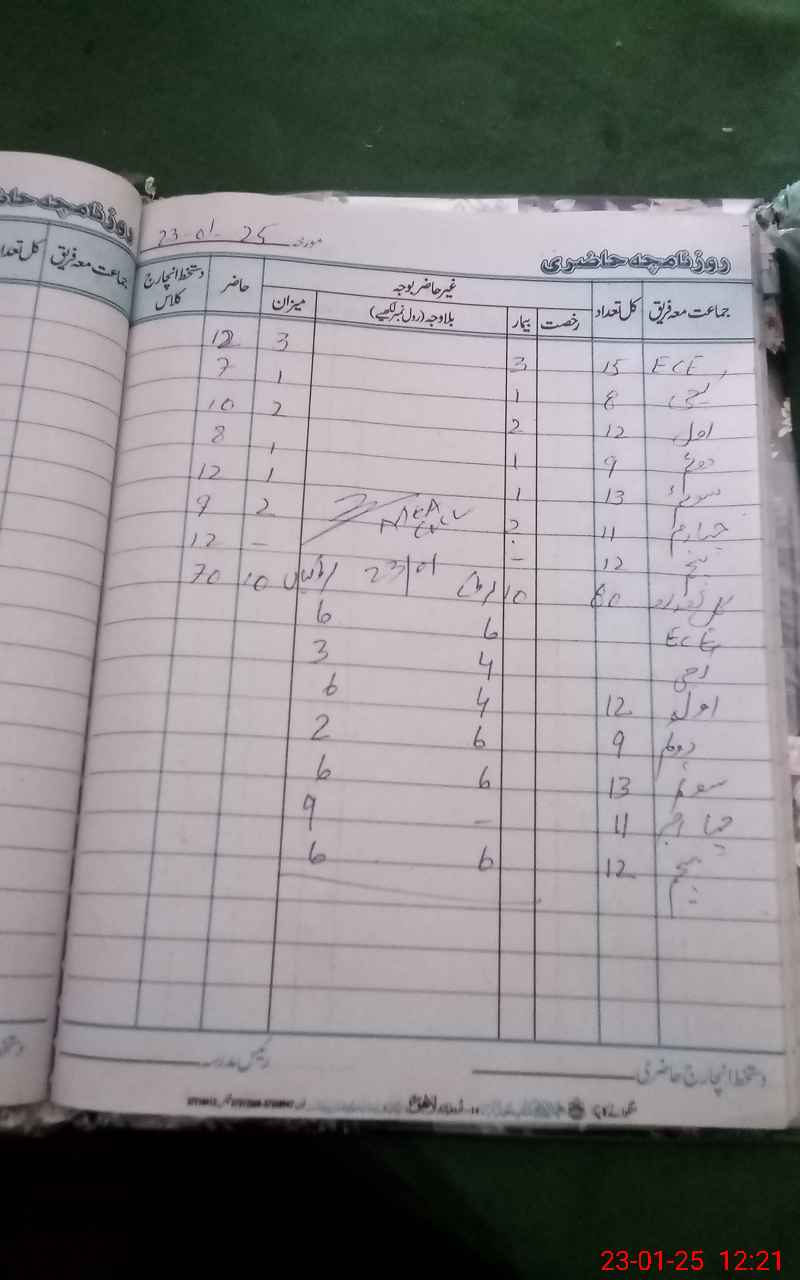 روزنامچہ حاضری
مورخہ 23-01-25
جماعت معہ فریق کل تعداد غیر حاضر بوجہ حاضر دستخط انچارج کلاس
رخصت بیمار بلاوجہ (رول نمبر لکھیے) میزان
ECE 15 3 3 12
کچی 8 1 1 7
اول 12 2 2 10
دوئم 9 1 1 8
سوئم 13 1 1 12
چہارم 11 2 2 9
پنجم 12 - - 12
کل تعداد 80 10 23/01 10 70
ECE 6 6
4 3
اول 12 4 6
دوئم 9 6 2
سوئم 13 6 6
چہارم 11 - 9
پنجم 12 6 6
دستخط انچارج حاضری رئیس مدرسہ
روزنامچہ
جماعت معہ فریق کل تعداد
23-01-25 12:21